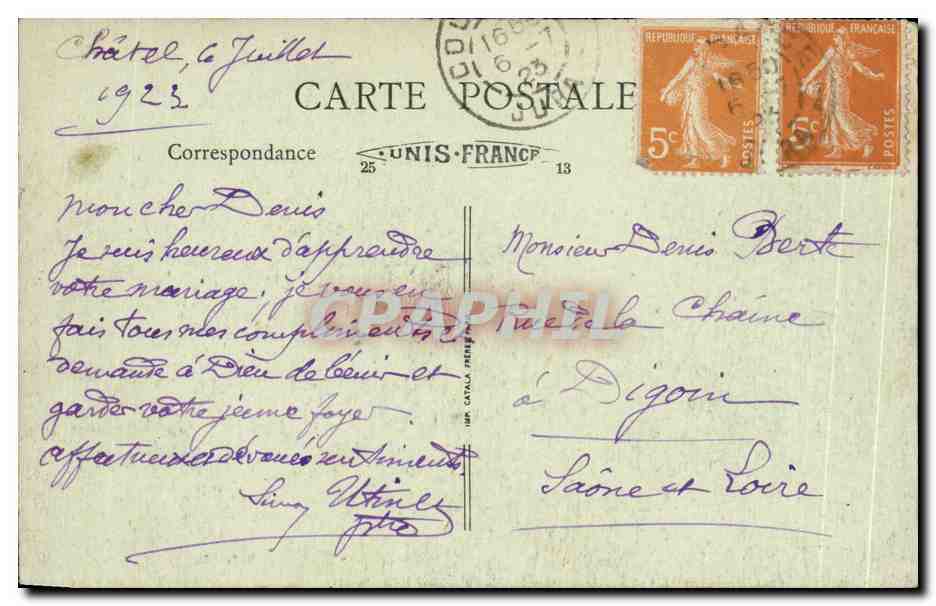 Châtel, 6 Juillet
1923
CARTE POSTALE
Correspondance
UNIS-FRANCE
25 13
16
6 -7
23
JURA
REPUBLIQUE FRANÇAISE
5c
POSTES
REPUBLIQUE FRANÇAISE
5c
POSTES
Mon cher Denis
Je suis heureux d'apprendre
votre mariage. je vous en
fais tous mes compliments et
demande à Dieu de bénir et
garder votre jeune foyer.
affectueux et dévoués sentiments.
IMP. CATALA FRÈRES
CPAPHIL
Monsieur Denis Berte
Rue de la Chaîne
à Digoin
Saône et Loire